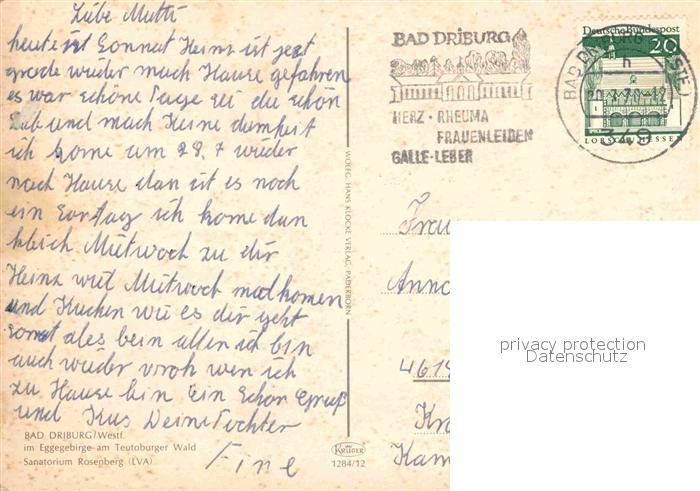 Liebe Mutti
heute ist Sonnat Heinz ist jezt
grade wieder mach Hause gefahren
es war schöne Tage sei du schön
Lieb und mach Keine dumheit
ich kome um 29.7 wieder
nach Hause dan ist es noch
ein Sontag ich kome dan
kleich Mittwoch zu dir
Heinz wiel Mittwoch mal komen
und Kucken wie es dir geht
sonst ales bein allen ich bin
auch wieder vroh wen ich
zu Hause bin Ein Schön Gruß
und Kus Deine Tochter
Fine
BAD DRIBURG/Westf.
im Eggegebirge am Teutoburger Wald
Sanatorium Rosenberg (LVA)
WOLFG. HANS KLOCKE VERLAG, PADERBORN
KRÜGER
1284/12
BAD DRIBURG
HERZ · RHEUMA
FRAUENLEIDEN
GALLE · LEBER
Deutsche Bundespost
20
LORSCH/HESSEN
BAD DRIBURG (WESTF)
h
349
Frau
Anna
4619
Kam
privacy protection
Datenschutz